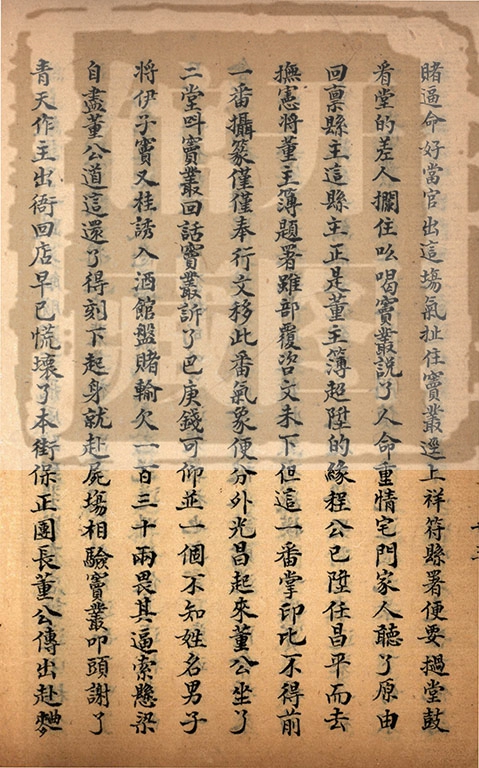 賭逼命好當官出這塲氣扯住竇叢逕上祥符縣署便要撾堂鼓
看堂的差人攔住吆喝竇叢說了人命重情宅門家人聽了原由
回禀縣主這縣主正是董主簿超陞的緣程公已陞任昌平而去
撫憲將董主簿題署雖部覆咨文未下但這一番掌印比不得前
一番攝篆僅僅奉行文移此番氣象便分外光昌起來董公坐了
二堂呌竇叢回話竇叢訴了巴庚錢可仰並一個不知姓名男子
將伊子竇又桂誘入酒館盤賭輸欠一百三十兩畏其逼索懸梁
自盡董公道這還了得刻下起身就赴屍塲相驗竇叢叩頭謝了
青天作主出衙回店早已慌壞了本街保正團長董公傳出赴麯